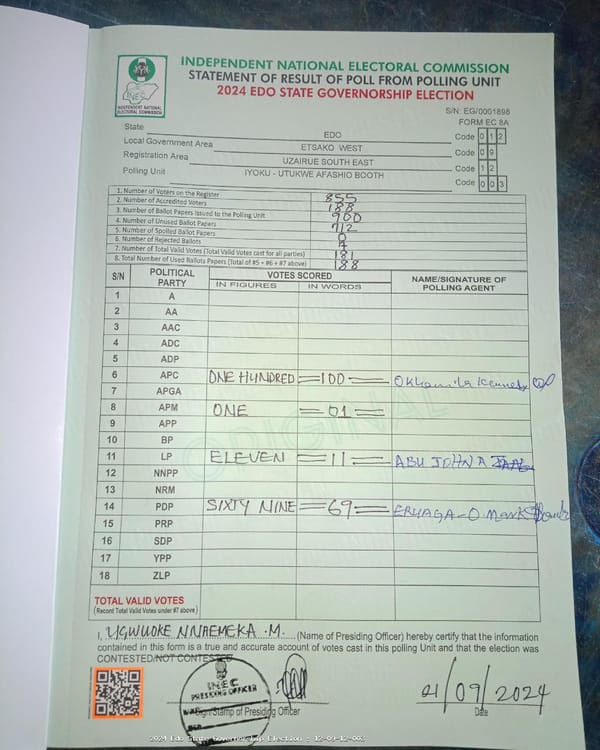 INDEPENDENT NATIONAL ELECTORAL COMMISSION
STATEMENT OF RESULT OF POLL FROM POLLING UNIT
2024 EDO STATE GOVERNORSHIP ELECTION
INEC
INDEPENDENT NATIONAL ELECTORAL COMMISSION
S/N: EG/0001898
FORM EC 8A
State EDO Code 0 1 2
Local Government Area ETSAKO WEST Code 0 9
Registration Area UZAIRUE SOUTH EAST Code 1 2
Polling Unit IYOKU - UTUKWE AFASHIO BOOTH Code 0 0 3
1. Number of Voters on the Register 855
2. Number of Accredited Voters 188
3. Number of Ballot Papers Issued to the Polling Unit 900
4. Number of Unused Ballot Papers 712
5. Number of Spoiled Ballot Papers 0
6. Number of Rejected Ballots 7
7. Number of Total Valid Votes (Total Valid Votes cast for all parties) 181
8. Total Number of Used Ballots Papers (Total of #5 + #6 + #7 above) 188
S/N POLITICAL PARTY VOTES SCORED NAME/SIGNATURE OF POLLING AGENT
IN FIGURES IN WORDS
1 A
2 AA
3 AAC
4 ADC
5 ADP
6 APC ONE HUNDRED =100=
7 APGA
8 APM ONE =01=
9 APP
10 BP
11 LP ELEVEN =11= ABU JOHN A
12 NNPP
13 NRM
14 PDP SIXTY NINE =69= Mark
15 PRP
16 SDP
17 YPP
18 ZLP
ORIGINAL
TOTAL VALID VOTES
(Record Total Valid Votes under #7 above)
I, UGWUOKE NNAEMEKA .M. (Name of Presiding Officer) hereby certify that the information
contained in this form is a true and accurate account of votes cast in this polling Unit and that the election was
CONTESTED/NOT CONTESTED
INEC
PRESIDING OFFICER
Sign/Stamp of Presiding Officer
21/09/2024
Date
2024 Edo State Governorship Election : 12-09-12-003